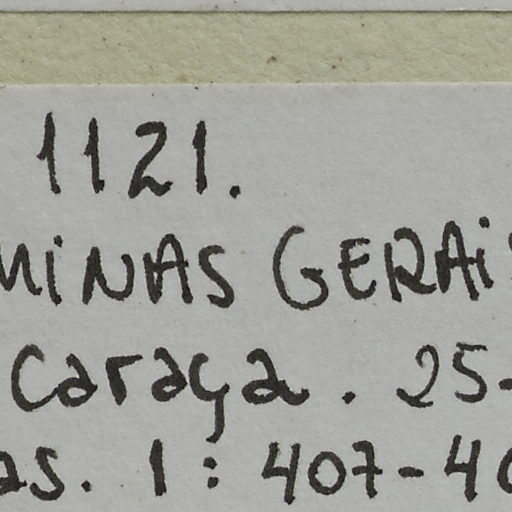 1121.
MINAS GERAIS
Caraça. 25-
as. 1: 407-40